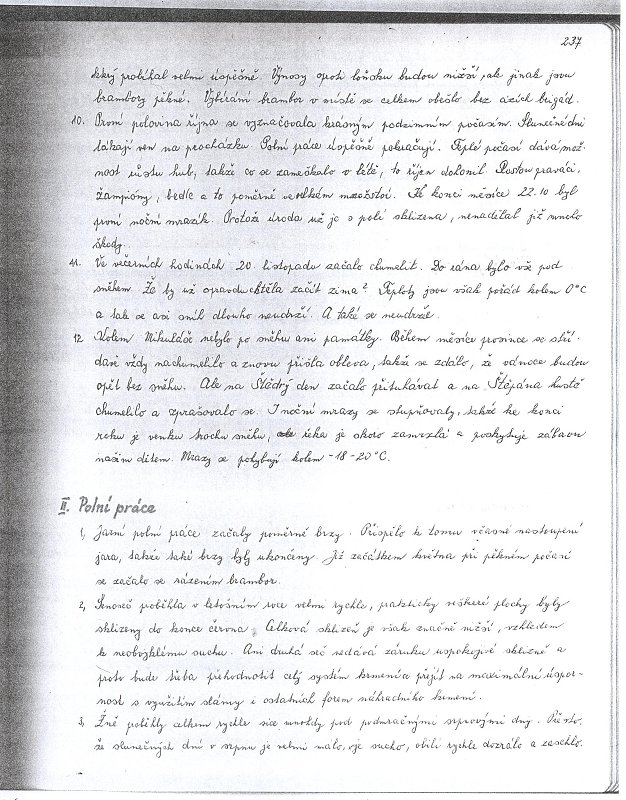 237
který probíhal velmi úspěšně. Výnosy oproti loňsku budou nižší, ale jinak jsou
brambory pěkné. Vybírání brambor v místě se celkem obešlo bez cizích brigád.
10. První polovina října se vyznačovala krásným podzimním počasím. Slunečné dni
lákají ven na procházku. Polní práce úspěšně pokračují. Teplé počasí dává mož-
nost růstu hub, takže co se zameškalo v létě, to říjen dohonil. Rostou praváci,
žampióny, bedle a to poměrně ve velkém množství. Ke konci měsíce 22.10 byl
první noční mrazík. Protože úroda už je s polí sklizena, nenadělal již mnoho
škody.
11. Ve večerních hodinách 20. listopadu začalo chumelit. Do rána bylo vše pod
sněhem. Že by už opravdu chtěla začít zima? Teploty jsou však pořád kolem 0°C
a tak se asi sníh dlouho neudrží. A také se neudržel.
12. Kolem Mikuláše nebylo po sněhu ani památky. Během měsíce prosince se stří-
davě vždy nachumelilo a znovu přišla obleva, takže se zdálo, že vánoce budou
opět bez sněhu. Ale na Štědrý den začalo přituhávat a na Štěpána hustě
chumelilo a zprašovalo se. I noční mrazy se stupňovaly, takže ke konci
roku je venku trochu sněhu, řeka je skoro zamrzlá a poskytuje zábavu
našim dětem. Mrazy se pohybují kolem -18 -20°C.
II. Polní práce
1, Jarní polní práce začaly poměrně brzy. Přispělo k tomu včasné nastoupení
jara, takže také brzy byly ukončeny. Již začátkem května při pěkném počasí
se začalo se sázením brambor.
2, Senoseč proběhla v letošním roce velmi rychle, prakticky veškeré plochy byly
sklizeny do konce června. Celková sklizeň je však značně nižší, vzhledem
k neobvyklému suchu. Ani druhá seč nedává záruku uspokojivé sklizně a
proto bude třeba přehodnotit celý systém krmení a přejít na maximální úspor-
nost s využitím slámy i ostatních forem náhradního krmení.
3, Žně poběhly celkem rychle sice mnohdy pod podmračnými srpnovými dny. Přesto,
že slunečných dní v srpnu je velmi málo, je sucho, obilí rychle dozrálo a zaschlo.